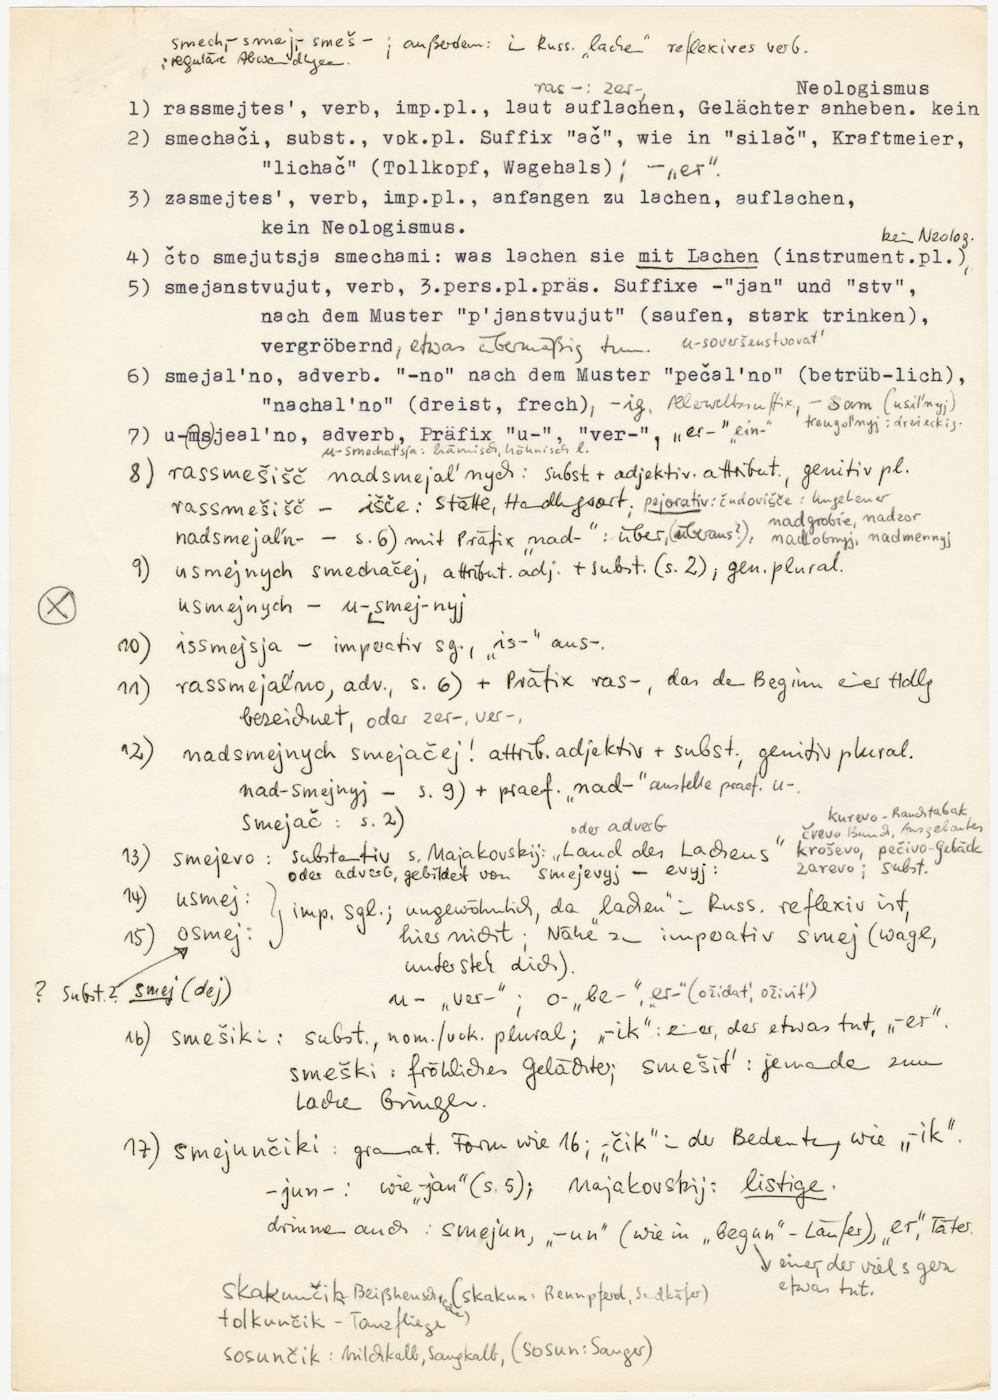 smech-, smej-, smeš- ; außerdem: in Russ. "lachen" reflexives verb.
; reguläre Abwandlungen.
ras-: zer-,
Neologismus
1) rassmejtes', verb, imp.pl., laut auflachen, Gelächter anheben. kein
2) smechači, subst., vok.pl. Suffix "ač", wie in "silač", Kraftmeier,
"lichač" (Tollkopf, Wagehals); - "er".
3) zasmejtes', verb, imp.pl., anfangen zu lachen, auflachen,
kein Neologismus.
kein Neolog.
4) čto smejutsja smechami: was lachen sie mit Lachen (instrument.pl.),
5) smejanstvujut, verb, 3.pers.pl.präs. Suffixe -"jan" und "stv",
nach dem Muster "p'janstvujut" (saufen, stark trinken),
vergröbernd, etwas übermäßig tun. u-soveršenstvovat'
6) smejal'no, adverb. "-no" nach dem Muster "pečal'no" (betrüb-lich),
"nachal'no" (dreist, frech), -ig, Allerweltssuffix, -sam (usil'nyj)
treugol'nyj: dreieckig.
7) u-msjeal'no, adverb, Präfix "u-", "ver-", "er-" "ein-"
u-smechat'sja: hämisch, höhnisch l.
8) rassmešišč nadsmejal'nych: subst + adjektiv. attribut., genitiv pl.
rassmešišč - išče: Stätte, Handlgsort, pejorativ: čudovišče: Ungeheuer
nadsmejal'n- - s. 6) mit Präfix "nad-": über, (überaus?), nadgrobie, nadzor
nadlobnyj, nadmennyj
9) usmejnych smechačej, attribut. adj. + subst. (s. 2), gen. plural.
usmejnych - u-smej-nyj
10) issmejsja - imperativ sg., "is-" aus-.
11) rassmejal'no, adv., s. 6) + Präfix ras-, das den Beginn einer Hdlg
bezeichnet, oder zer-, ver-,
12) nadsmejnych smejačej! attrib. adjektiv + subst., genitiv plural.
nad-smejnyj - s. 9) + praef. "nad-" anstelle praef. u-.
Smejač: s. 2)
oder adverb
kurevo - Rauchtabak
črevo Bauch,
13) smejevo: substantiv s. Majakovskij: "Land des Lachens" kroševo, pečivo-Gebäck
oder adverb, gebildet von smejevyj - evyj: zarevo; subst.
14) usmej:
imp. sgl.; ungewöhnlich, da "lachen" in Russ. reflexiv ist,
15) osmej: hier nicht; Nähe zu imperativ smej (wage,
untersteh dich).
? subst.? smej (dej)
u- "ver-"; o- "be-", "er-" (ožidat', oživit')
16) smešiki: subst., nom./vok. plural; "-ik": einer, der etwas tut, "-er".
smeški: fröhliches Gelächter; smešit': jemanden zum
Lachen bringen.
17) smejunčiki: grammat. Form wie 16; "-čik" in der Bedeutung wie "-ik".
-jun-: wie "-jan" (s. 5); Majakovskij: listige.
drinnen auch: smejun, "-un" (wie in "begun" - Läufer), "er", Täter.
einer, der viel s gern
etwas tut.
skakunčik (skakun: Rennpferd, Sandkäfer)
tolkunčik - Tanzfliege
sosunčik: Milchkalb, Saugkalb, (sosun: Sauger)